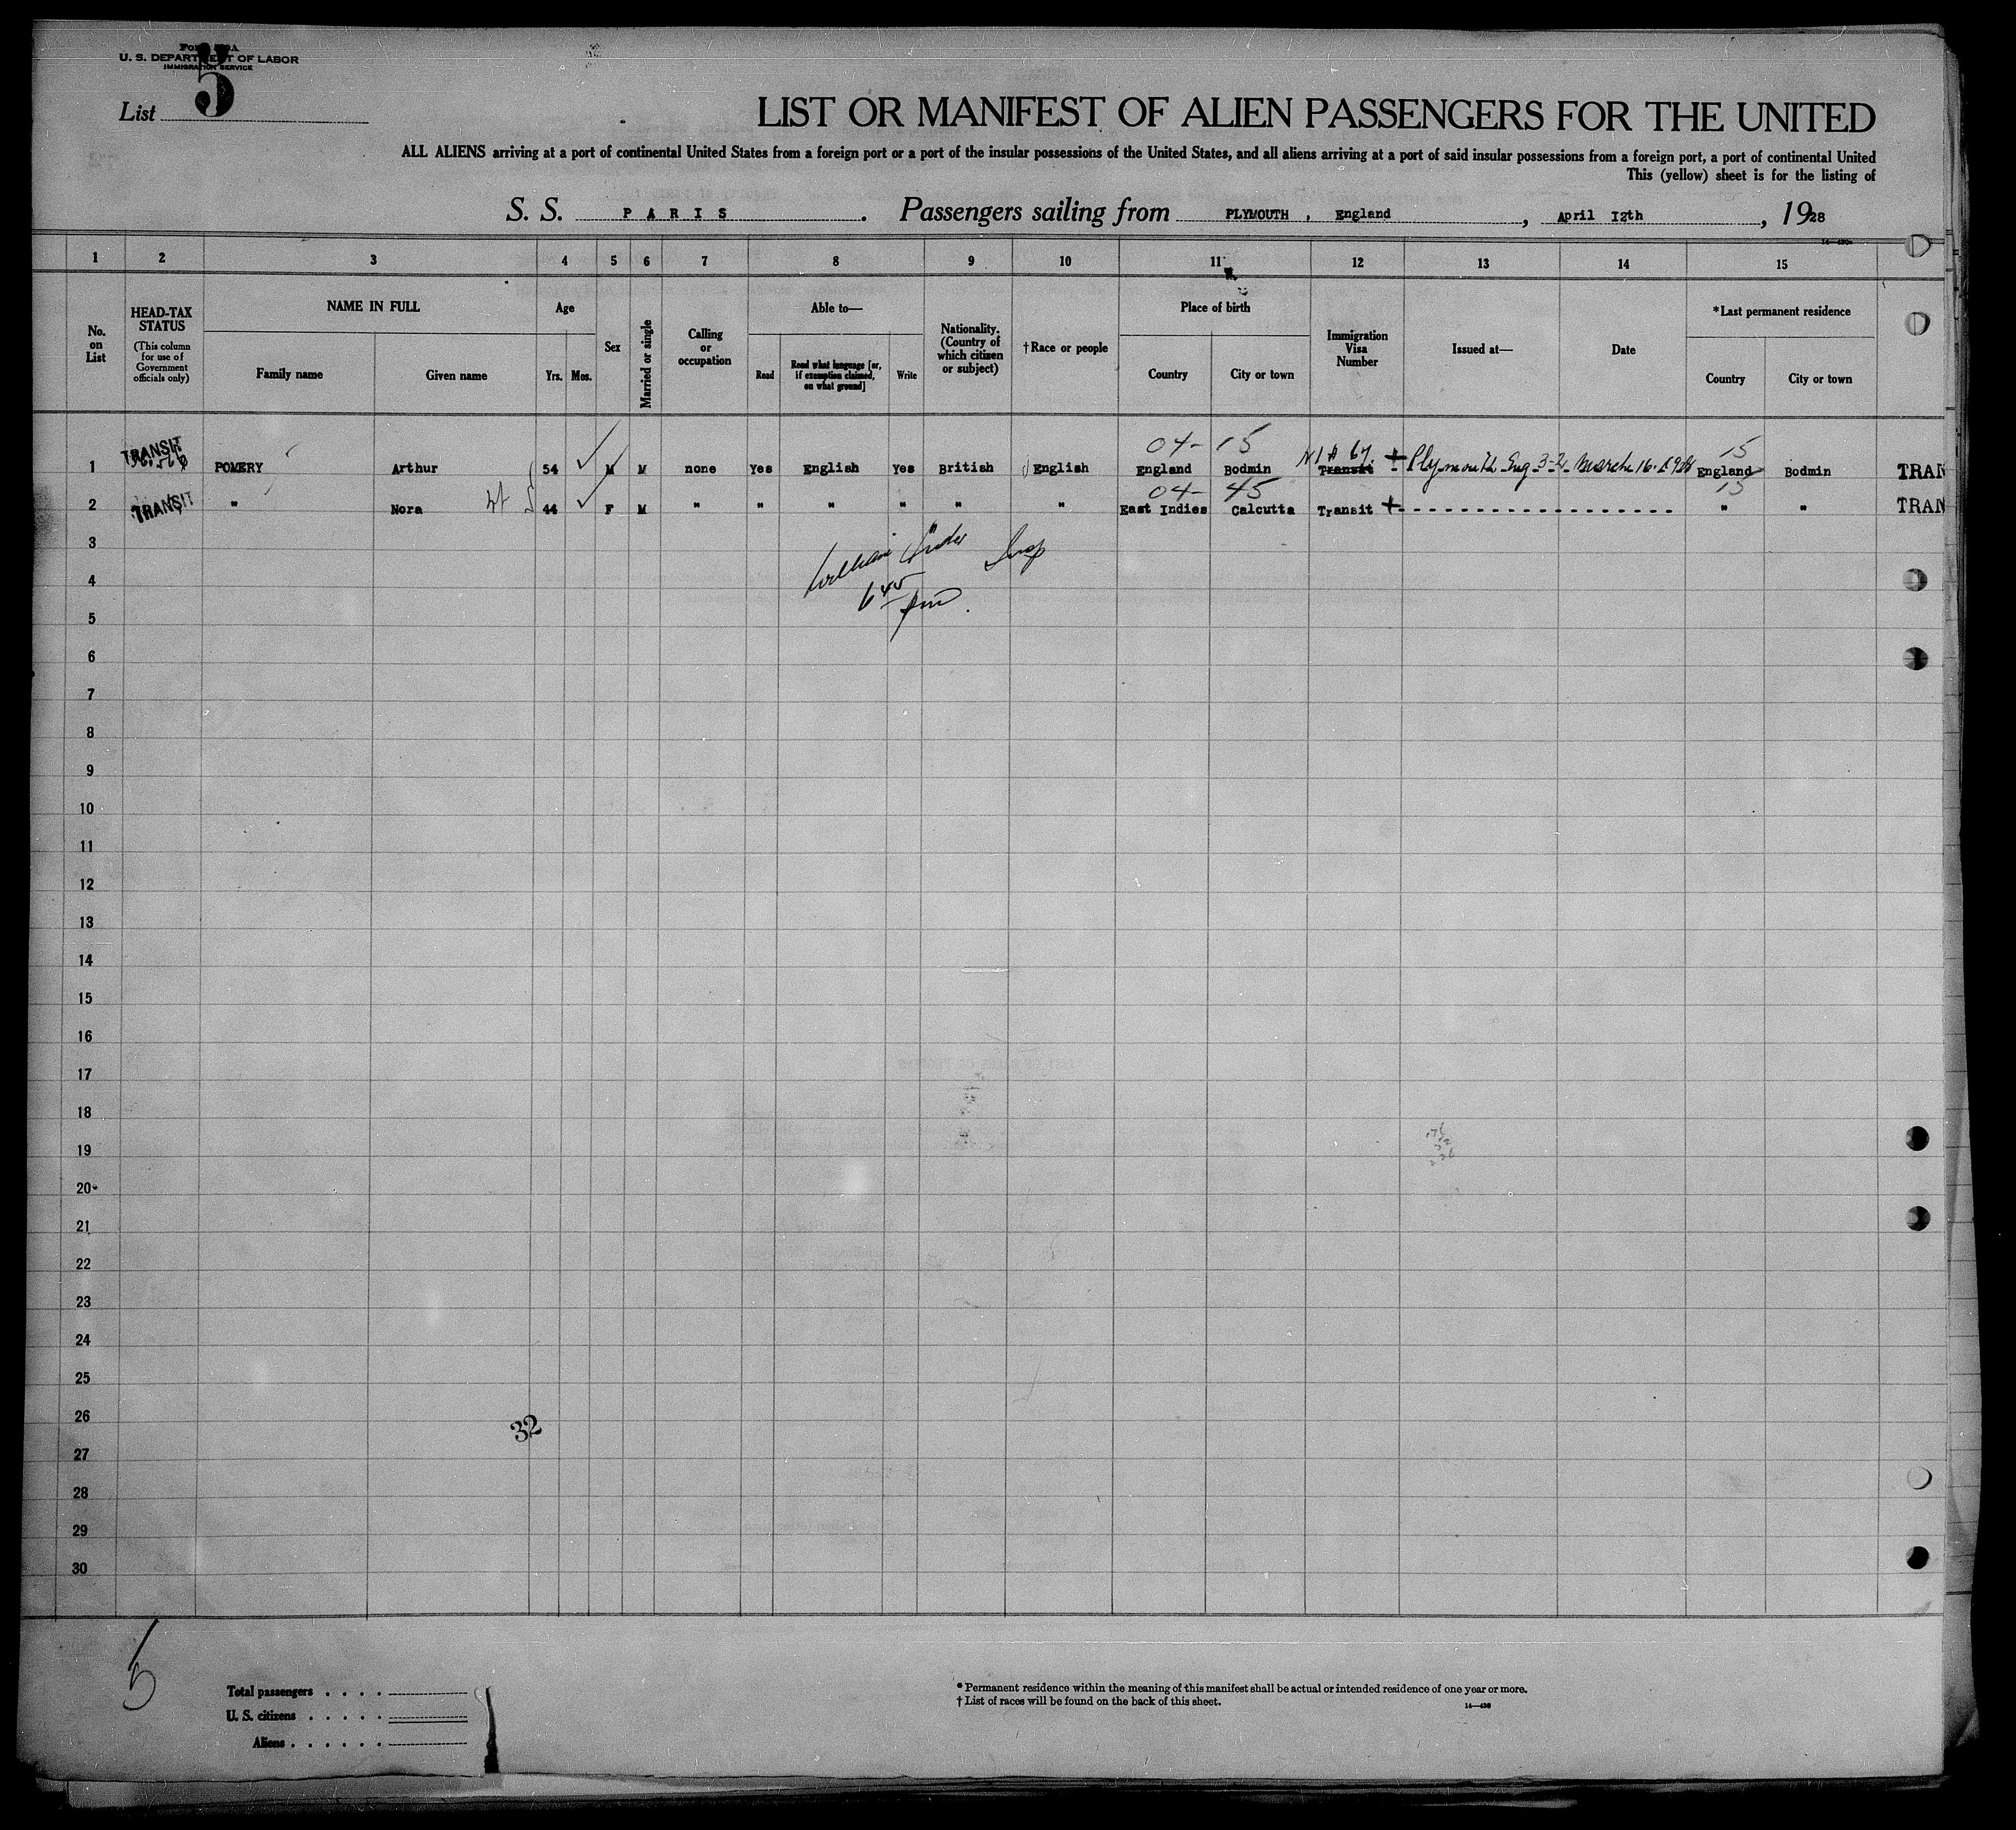 U. S. DEPARTMENT OF LABOR
IMMIGRATION SERVICE
List 5
LIST OR MANIFEST OF ALIEN PASSENGERS FOR THE UNITED
ALL ALIENS arriving at a port of continental United States from a foreign port or a port of the insular possessions of the United States, and all aliens arriving at a port of said insular possessions from a foreign port, a port of continental United
This (yellow) sheet is for the listing of
S. S. PARIS. Passengers sailing from PLYMOUTH , England, April I2th, 1928
1 2 3 4 5 6 7 8 9 10 11 12 13 14 15
No. on List
HEAD-TAX STATUS
(This column for use of Government officials only)
NAME IN FULL
Family name
Given name
Age
Yrs.
Mos.
Sex
Married or single
Calling or occupation
Able to—
Read
Read what language [or, if exemption claimed, on what ground]
Write
Nationality. (Country of which citizen or subject)
†Race or people
Place of birth
Country
City or town
Immigration Visa Number
Issued at—
Date
*Last permanent residence
Country
City or town
04- 15
15
1 TRANSIT POMERY Arthur 54 M M none Yes English Yes British English England Bodmin Transit Plymouth Eng 3-2- March 16. 1928 England Bodmin TRAN
04- 45
15
2 TRANSIT " Nora 44 F M " " " " " " East Indies Calcutta Transit + - - - - - - - - - - - - - - - - - - - " " TRAN
3
William Insp
4
6 45 pm
5
6
7
8
9
10
11
12
13
14
15
16
17
18
19
20
21
22
23
24
25
26
32
27
28
29
30
5
Total passengers . . . .
U. S. citizens . . . . .
Aliens . . . . . .
* Permanent residence within the meaning of this manifest shall be actual or intended residence of one year or more.
† List of races will be found on the back of this sheet.